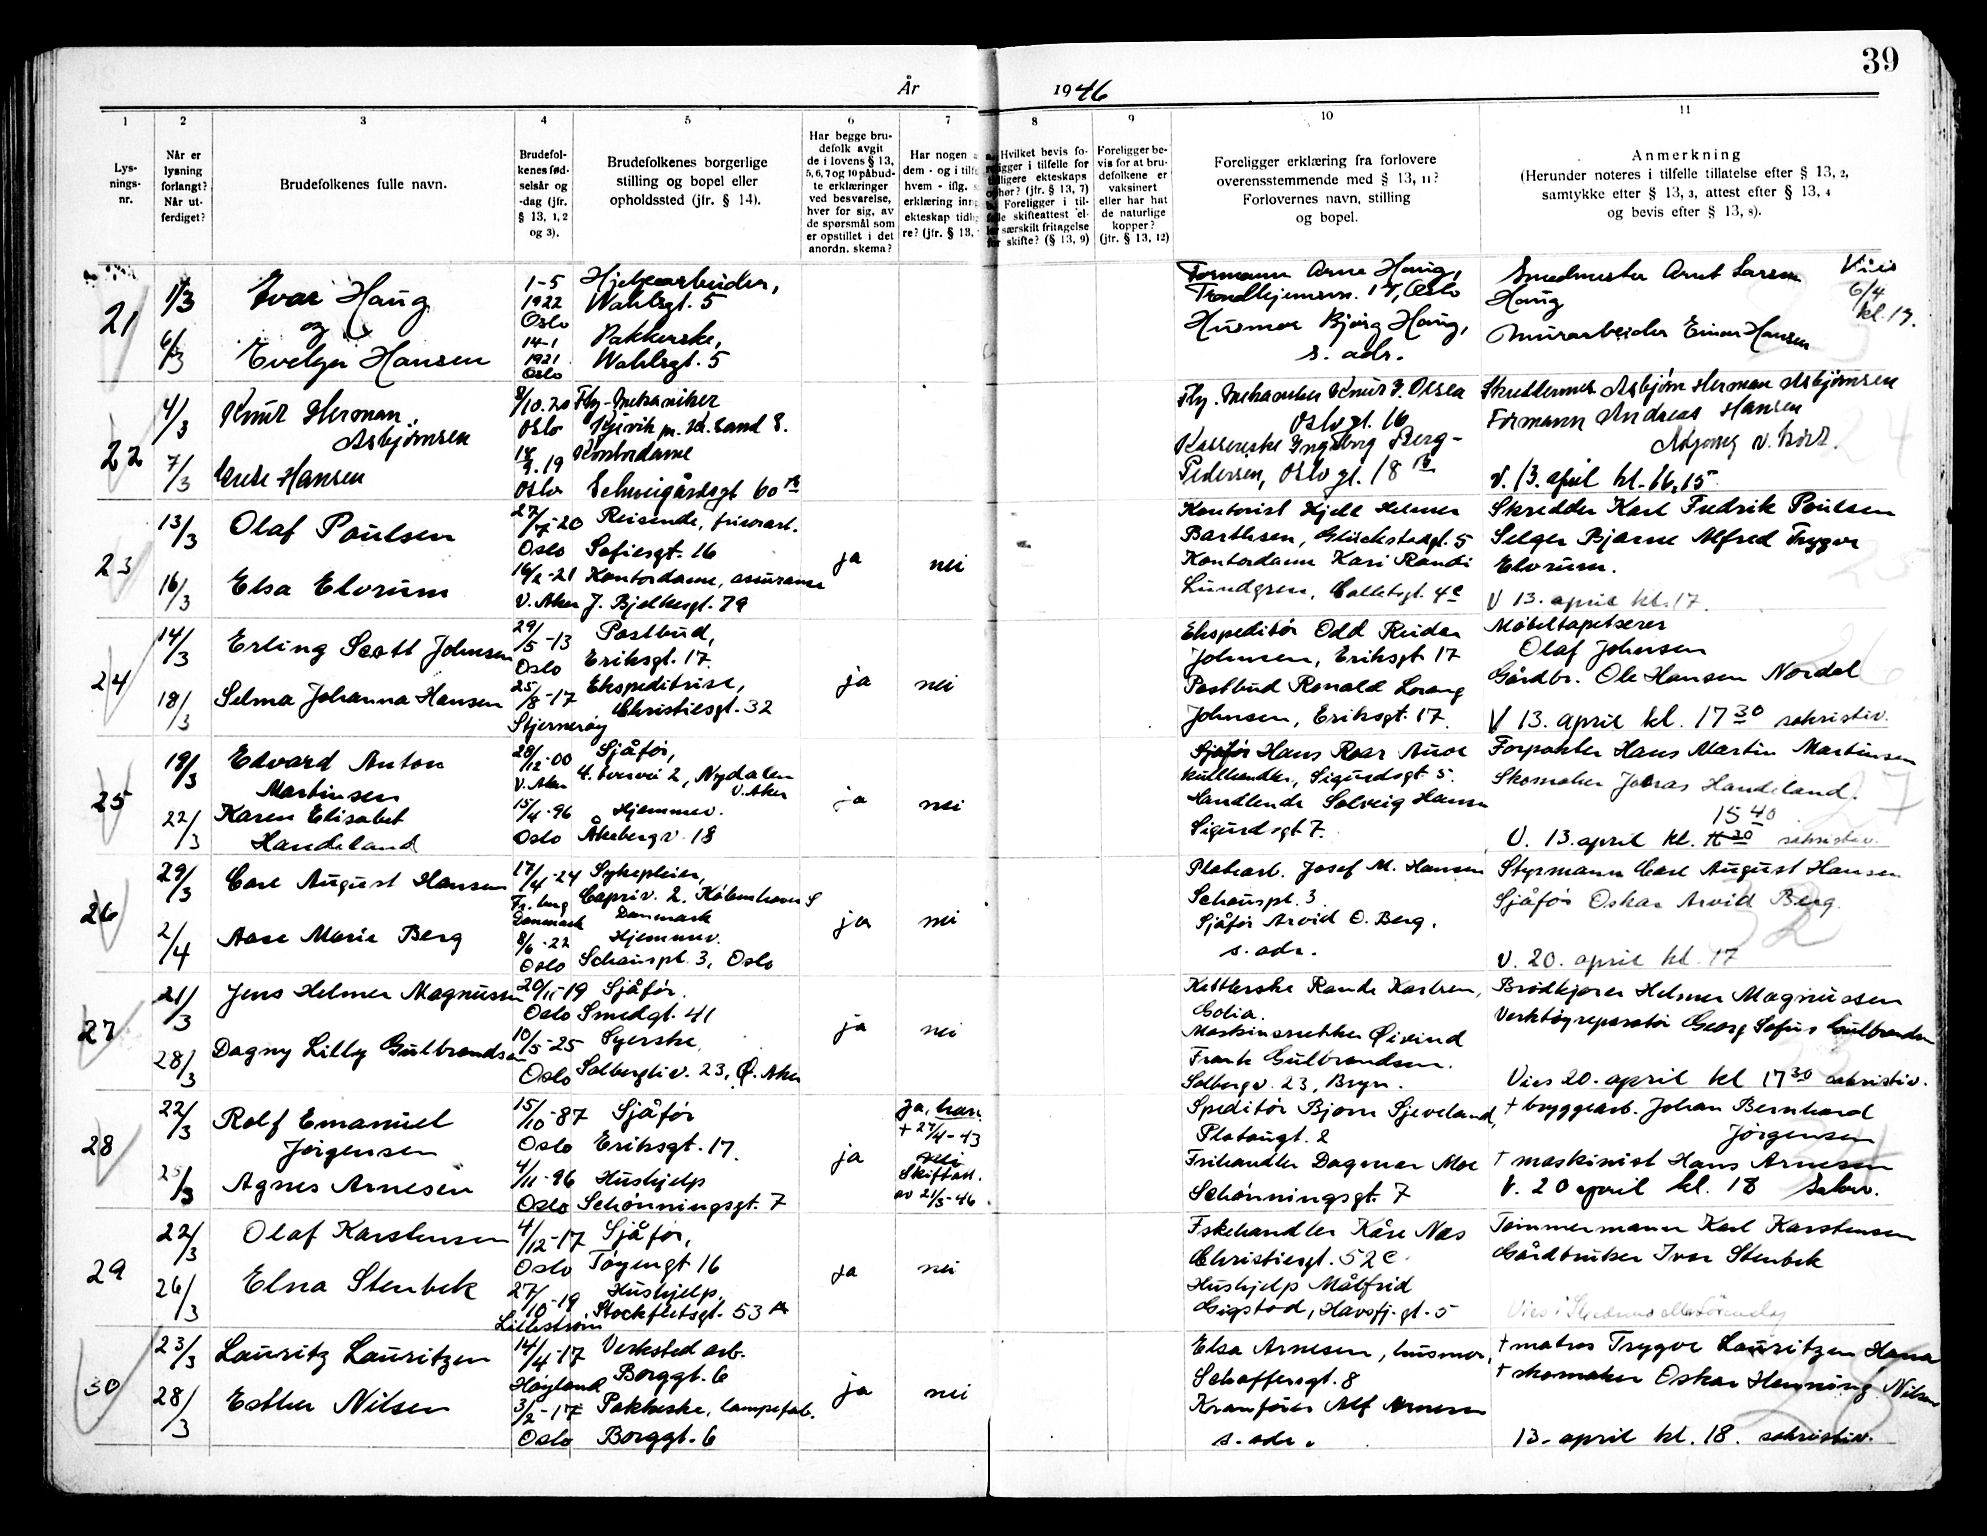 39
År 1946
1 2 3 4 5 6 7 8 9 10 11
Lys-
nings-
nr.
Når er
lysning
forlangt?
Når ut-
ferdiget?
Brudefolkenes fulle navn.
Brudefol-
kenes fød-
selsår og
-dag (jfr.
§ 13, 1, 2
og 3).
Brudefolkenes borgerlige
stilling og bopel eller
opholdssted (jfr. § 14).
Har begge bru-
defolk avgit
de i lovens § 13,
5, 6, 7 og 10 påbud-
te erklæringer
ved besvarelse,
hver for sig, av
de spørsmål som
er opstillet i det
anordn. skema?
Har nogen
dem - og i tilf
hvem - iflg.
erklæring inn
ekteskap tidli
re? (jfr. § 13,
Hvilket bevis fo-
religger i tilfelle for
tidligere ekteskaps
ophør? (jfr. § 13, 7)
Foreligger i til-
felle skifteattest el-
ler særskilt fritagelse
for skifte? (§ 13, 9)
Foreligger be-
vis for at bru-
defolkene er
vaksinert
eller har hat
de naturlige
kopper?
(jfr. § 13, 12)
Foreligger erklæring fra forlovere
overensstemmende med § 13, 11?
Forlovernes navn, stilling
og bopel.
Anmerkning
(Herunder noteres i tilfelle tillatelse efter § 13, 2,
samtykke efter § 13, 3, attest efter § 13, 4
og bevis efter § 13, 8).
21
1/3
6/3
Ivar Haug
og
Evelyn Hansen
1-5
1922
Oslo
14-1
1921
Oslo
Hjelpearbeider,
Wahlsgt. 5
Pakkerske,
Wahlsgt. 5
Formann Arne Haug,
Trondhjemsvn. 17, Oslo
Husmor Bjørg Haug,
s. adr.
Smedmester Arnt Larsen
Haug
Murarbeider Einar Hansen
Vies
6/4
kl. 17.
22
4/3
7/3
Knut Herman
Asbjørnsen
Grete Hansen
9/10.20
Oslo
18/9.19
Oslo
Fly-mekaniker
Kjevik pr. Kr. sand S.
Kontordame
Schweigårdsgt 60 B
Fly.mekaniker Knut G. Olsen
Oslo gt. 16
Kassererske Ingeborg Berg-
Pedersen, Oslo gt. 18 B
Skreddermester Asbjørn Herman Asbjørnsen
Formann Andreas Hansen
V. 13. april kl. 16,15
23
13/3
16/3
Olaf Poulsen
Elsa Elvrum
-20
Oslo
16/2-21
V. Aker
Reisende, frisørart.
Sofiesgt. 16
Kontordame, assuranse
J. Bjelkesgt. 79
ja
nei
Kontorist Kjell Helmer
Barthsen, Glückstadgt. 5
Kontordame Kari Randi
Lundgren, Colletsgt. 4c
Skredder Karl Fredrik Poulsen
Selger Bjarne Alfred Trygve
Elvrum.
V 13. april kl. 17.
24
14/3
18/3
Erling Scott Johnsen
Selma Johanna Hansen
29/5-13
Oslo
25/8-17
Stjernerøy
Postbud,
Eriksgt. 17.
Ekspeditrise,
Christiesgt. 32
ja
nei
Ekspeditør Odd Reidar
Johnsen, Eriksgt 17
Postbud Ronald Lorang
Johnsen, Eriksgt. 17.
Møbeltapetserer
Olaf Johnsen
Gårdbr. Ole Hansen Nordal
V 13. april kl. 17 30 sakristiv.
25
19/3
22/3
Edvard Anton
Martinsen
Karen Elisabet
Handeland
28/12-00
V. Aker
15/4-96
Oslo
Sjåfør,
4. tverrvei 2, Nydalen
V. Aker
Hjemmev.
Åkebergv. 18
ja
nei
Sjåfør Hans Roar Auve
kullhandler, Sigurdsgt 5.
Handlende Solveig Hansen
Sigurdsgt 7.
Forpakter Hans Martin Martinsen
Skomaker Jonas Handeland.
15 40
V. 13. april kl. sakristiv.
26
29/3
2/4
Carl August Hansen
Aase Marie Berg
17/4-24
Fr. berg
Danmark
8/6-22
Oslo
Sykepleier,
Capriv. 2. København S
Danmark
Hjemmev.
Schouspl. 3, Oslo
ja
nei
Platearb. Josef M. Hansen
Schouspl. 3.
Sjåfør Arvid O. Berg.
s. adr.
Styrmann Carl August Hansen
Sjåfør Oskar Arvid Berg.
V. 20. april kl. 17
27
21/3
28/3
Jens Helmer Magnussen
Dagny Lilly Gulbrandsen
20/11-19
Oslo
10/5-25
Oslo
Sjåfør.
Smedgt. 41
Syerske,
Solbergliv. 23, Ø. Aker
ja
nei
Kittlerske Rande Karlsen,
Maskinsnekker Øivind
Frank Gulbrandsen.
Solbergv. 23, Bryn.
Brødkjører Helmer Magnussen
Verktøyreparatør Georg Sofus Gulbrandsen
Vies 20. april kl 17 30 sakristiv.
28
22/3
25/3
Rolf Emanuel
Jørgensen
Agnes Arnesen
15/10-87
Oslo
4/11-96
Oslo
Sjåfør
Eriksgt. 17.
Hushjelp
Schønningsgt. 7
ja
Ja, han
+ 27/4-43
nei
Skifteatt.
av 21/3-46
Speditør Bjørn Sjeveland,
Platougt. 2
Frihandler Dagmar Moe
Schønningsgt. 7
+ bryggearb. Johan Bernhard
Jørgensen
+ maskinist Hans Arnesen
V. 20 april kl. 18 Sakr.
29
22/3
26/3
Olaf Karstensen
Elna Stenbek
4/12-17
Oslo
27/10-19
Lillestrøm
Sjåfør,
Tøyengt 16
Hushjelp,
Stockfletsgt. 53 A
ja
nei
Fskehandler Kåre Næs
Christiesgt. 52 c.
Hushjelp Målfrid
Gigstad, Havsfj.gt. 5
Tømmermann Karl Karstensen
Gårdbruker Ivar Stenbek
Vies i
30
23/3
28/3
Lauritz Lauritzen
Esther Nilsen
14/4-17
Høyland
3/2-17
Oslo
Verksted arb.
Borggt. 6
Pakkeske, lampefab.
Borggt. 6
ja
nei
Elsa Arnesen, husmor,
Schaffersgt. 8
Kranfører Alf Arnesen
s. adr.
+ matros Trygve Lauritzen Hana
+ skomaker Oskar Henning Nilsen
13. april kl. 18. sakristiv.